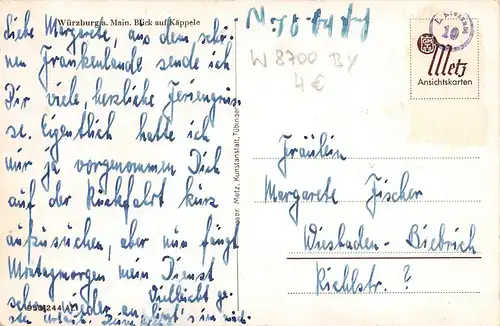 Würzburg a. Main. Blick auf Käppele
Liebe Margarete, aus dem schö-
nen Frankenlande sende ich
Dir viele, herzliche Feriengrüs-
se. Eigentlich hatte ich
mir ja vorgenommen Dich
auf der Rückfahrt kurz
aufzusuchen, aber nun fängt
Montagmorgen mein Dienst
schon wieder an. Vielleicht
Metz, Kunstanstalt, Tübingen
W 8700 BY
4 €
10
Metz
Ansichtskarten
Fräulein
Margarete Fischer
Wiesbaden-Biebrich
Riehlstr. ?